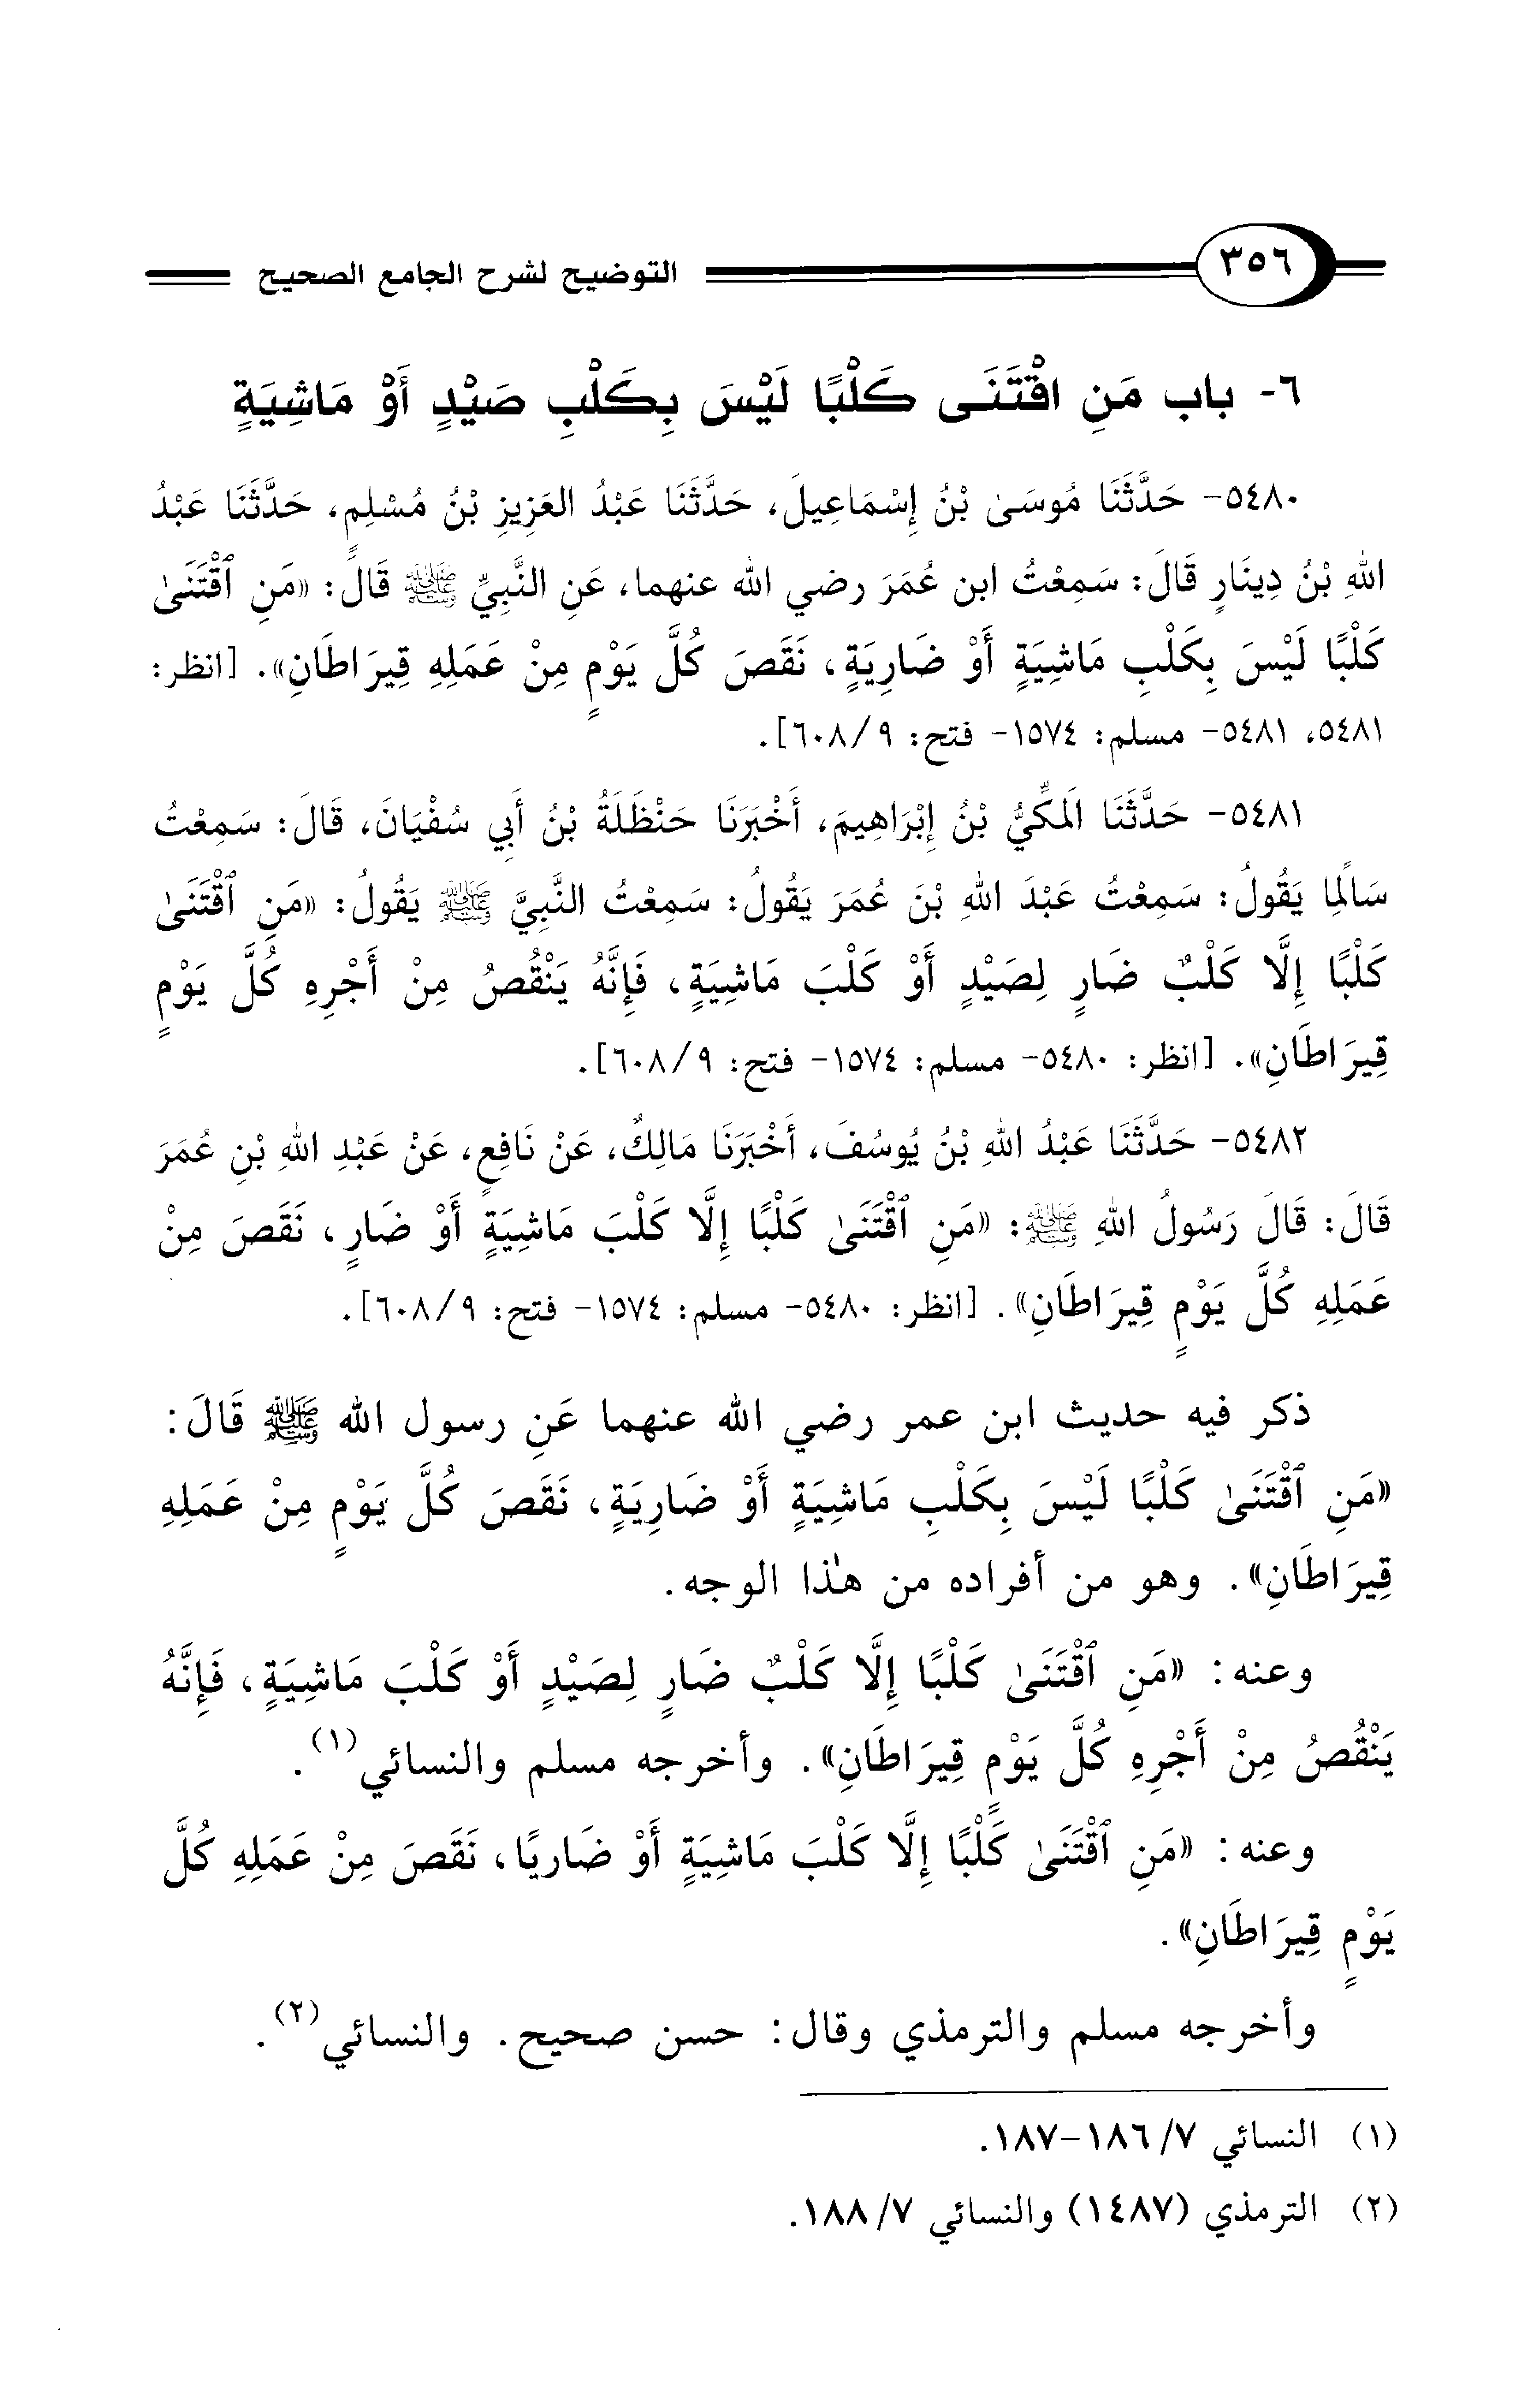 ٣٥٦ التوضيح لشرح الجامع الصحيح
٦- باب مَنِ اقْتَنَى كَلْبًا لَيْسَ بِكَلْبِ صَيْدٍ أَوْ مَاشِيَةٍ
٥٤٨٠- حَدَّثَنَا مُوسَىٰ بْنُ إِسْمَاعِيلَ، حَدَّثَنَا عَبْدُ العَزِيزِ بْنُ مُسْلِمٍ، حَدَّثَنَا عَبْدُ
اللهِ بْنُ دِينَارٍ قَالَ: سَمِعْتُ ابن عُمَرَ رضي الله عنهما، عَنِ النَّبِيِّ ﷺ قَالَ: «مَنِ ٱقْتَنَىٰ
كَلْبًا لَيْسَ بِكَلْبِ مَاشِيَةٍ أَوْ ضَارِيَةٍ، نَقَصَ كُلَّ يَوْمٍ مِنْ عَمَلِهِ قِيرَاطَانِ». [انظر:
٥٤٨١، ٥٤٨١- مسلم: ١٥٧٤- فتح: ٩/ ٦٠٨].
٥٤٨١- حَدَّثَنَا المَكِّيُّ بْنُ إِبْرَاهِيمَ، أَخْبَرَنَا حَنْظَلَةُ بْنُ أَبِي سُفْيَانَ، قَالَ: سَمِعْتُ
سَالِمًا يَقُولُ: سَمِعْتُ عَبْدَ اللهِ بْنَ عُمَرَ يَقُولُ: سَمِعْتُ النَّبِيَّ ﷺ يَقُولُ: «مَنِ ٱقْتَنَىٰ
كَلْبًا إِلَّا كَلْبٌ ضَارٍ لِصَيْدٍ أَوْ كَلْبَ مَاشِيَةٍ، فَإِنَّهُ يَنْقُصُ مِنْ أَجْرِهِ كُلَّ يَوْمٍ
قِيرَاطَانِ». [انظر: ٥٤٨٠- مسلم: ١٥٧٤- فتح: ٩/ ٦٠٨].
٥٤٨٢- حَدَّثَنَا عَبْدُ اللهِ بْنُ يُوسُفَ، أَخْبَرَنَا مَالِكٌ، عَنْ نَافِعٍ، عَنْ عَبْدِ اللهِ بْنِ عُمَرَ
قَالَ: قَالَ رَسُولُ اللهِ ﷺ: «مَنِ ٱقْتَنَىٰ كَلْبًا إِلَّا كَلْبَ مَاشِيَةٍ أَوْ ضَارٍ، نَقَصَ مِنْ
عَمَلِهِ كُلَّ يَوْمٍ قِيرَاطَانِ». [انظر: ٥٤٨٠- مسلم: ١٥٧٤- فتح: ٩/ ٦٠٨].
ذكر فيه حديث ابن عمر رضي الله عنهما عَنِ رسول الله ﷺ قَالَ:
«مَنِ ٱقْتَنَىٰ كَلْبًا لَيْسَ بِكَلْبِ مَاشِيَةٍ أَوْ ضَارِيَةٍ، نَقَصَ كُلَّ يَوْمٍ مِنْ عَمَلِهِ
قِيرَاطَانِ». وهو من أفراده من هٰذا الوجه.
وعنه: «مَنِ ٱقْتَنَىٰ كَلْبًا إِلَّا كَلْبٌ ضَارٍ لِصَيْدٍ أَوْ كَلْبَ مَاشِيَةٍ، فَإِنَّهُ
يَنْقُصُ مِنْ أَجْرِهِ كُلَّ يَوْمٍ قِيرَاطَانِ». وأخرجه مسلم والنسائي(١).
وعنه: «مَنِ ٱقْتَنَىٰ كَلْبًا إِلَّا كَلْبَ مَاشِيَةٍ أَوْ ضَارِيًا، نَقَصَ مِنْ عَمَلِهِ كُلَّ
يَوْمٍ قِيرَاطَانِ».
وأخرجه مسلم والترمذي وقال: حسن صحيح. والنسائي(٢).
(١) النسائي ٧/ ١٨٦-١٨٧.
(٢) الترمذي (١٤٨٧) والنسائي ٧/ ١٨٨.